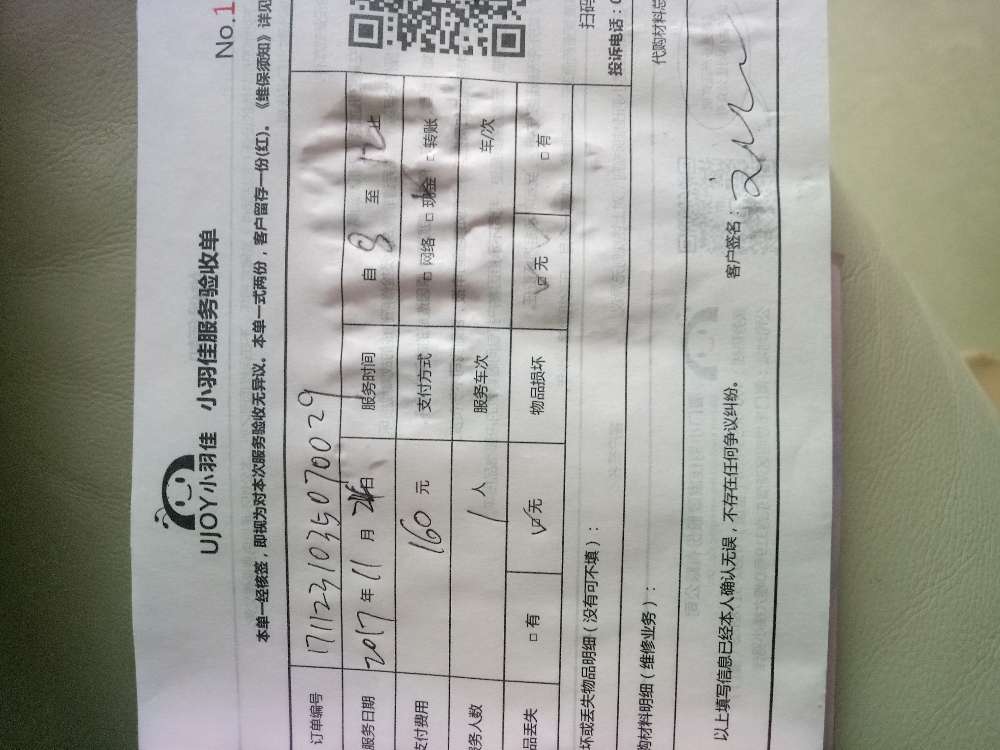 No.1
UJOY小羽佳 小羽佳服务验收单
本单一经核签，即视为对本次服务验收无异议。本单一式两份，客户留存一份(红)。《维保须知》详见
订单编号 17112310350700029
服务日期 2017年11月24日 服务时间 自8至12止
支付费用 160元 支付方式 □网络 □现金 □转账
务人数 1人 服务车次 车/次
品丢失 □有 □无 物品损坏 □无 □有
坏或丢失物品明细（没有可不填）：
扫码
投诉电话：0
购材料明细（维修业务）：
代购材料总
以上填写信息已经本人确认无误，不存在任何争议纠纷。 客户签名：